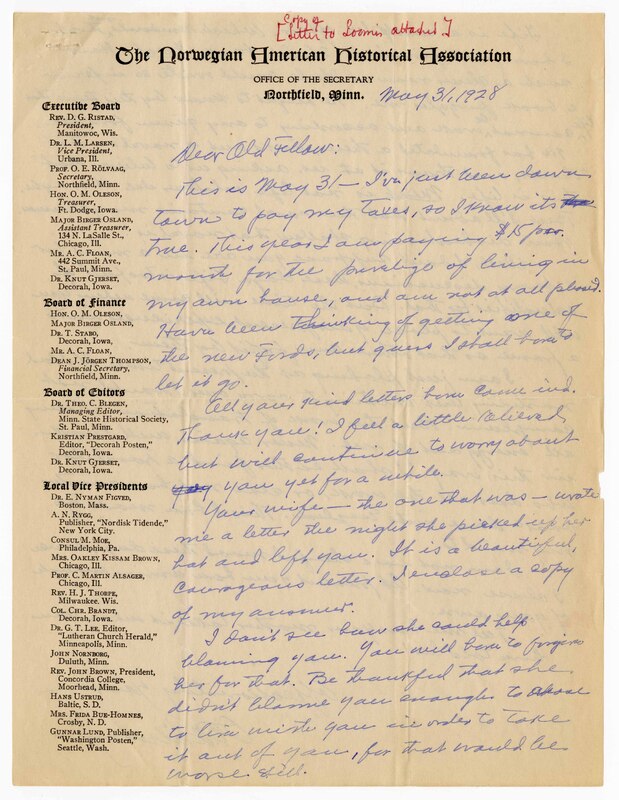 Copy of
[letter to Loomis attached]
The Norwegian American Historical Association
OFFICE OF THE SECRETARY
Northfield, Minn.
May 31, 1928
Executive Board
REV. D. G. RISTAD,
President,
Manitowoc, Wis.
DR. L. M. LARSEN,
Vice President,
Urbana, Ill.
PROF. O. E. RÖLVAAG,
Secretary,
Northfield, Minn.
HON. O. M. OLESON,
Treasurer,
Ft. Dodge, Iowa.
MAJOR BIRGER OSLAND,
Assistant Treasurer,
134 N. LaSalle St.,
Chicago, Ill.
MR. A. C. FLOAN,
442 Summit Ave.,
St. Paul, Minn.
DR. KNUT GJERSET,
Decorah, Iowa.
Board of Finance
HON. O. M. OLESON,
MAJOR BIRGER OSLAND,
DR. T. STABO,
Decorah, Iowa.
MR. A. C. FLOAN,
DEAN J. JÖRGEN THOMPSON,
Financial Secretary,
Northfield, Minn.
Board of Editors
DR. THEO. C. BLEGEN,
Managing Editor,
Minn. State Historical Society,
St. Paul, Minn.
KRISTIAN PRESTGARD,
Editor, "Decorah Posten,"
Decorah, Iowa.
DR. KNUT GJERSET,
Decorah, Iowa.
Local Vice Presidents
DR. E. NYMAN FIGVED,
Boston, Mass.
A. N. RYGG,
Publisher, "Nordisk Tidende,"
New York City.
CONSUL M. MOE,
Philadelphia, Pa.
MRS. OAKLEY KISSAM BROWN,
Chicago, Ill.
PROF. C. MARTIN ALSAGER,
Chicago, Ill.
REV. H. J. THORPE,
Milwaukee, Wis.
COL. CHR. BRANDT,
Decorah, Iowa.
DR. G. T. LEE, Editor,
"Lutheran Church Herald,"
Minneapolis, Minn.
JOHN NORNBORG,
Duluth, Minn.
REV. JOHN BROWN, President,
Concordia College,
Moorhead, Minn.
HANS USTRUD,
Baltic, S. D.
MRS. FRIDA BUE-HOMNES,
Crosby, N. D.
GUNNAR LUND, Publisher,
"Washington Posten,"
Seattle, Wash.
Dear Old Fellow:
This is May 31 – I've just been down
town to pay my taxes, so I know its
true. This year I am paying $15 per
month for the privilige of living in
my own house, and am not at all pleased.
Have been thinking of getting one of
the new Fords, but guess I shall have to
let it go.
All your kind letters have come in.
Thank you! I feel a little relieved
but will continue to worry about
you yet for a while.
Your wife – the one that was – wrote
me a letter the night she picked up her
hat and left you. It is a beautiful,
courageous letter. I enclose a copy
of my answer.
I don't see how she could help
blaming you. You will have to forgive
her for that. Be thankful that she
didn't blame you enough to
to live with you in order to take
it out of you, for that would be
worse still.